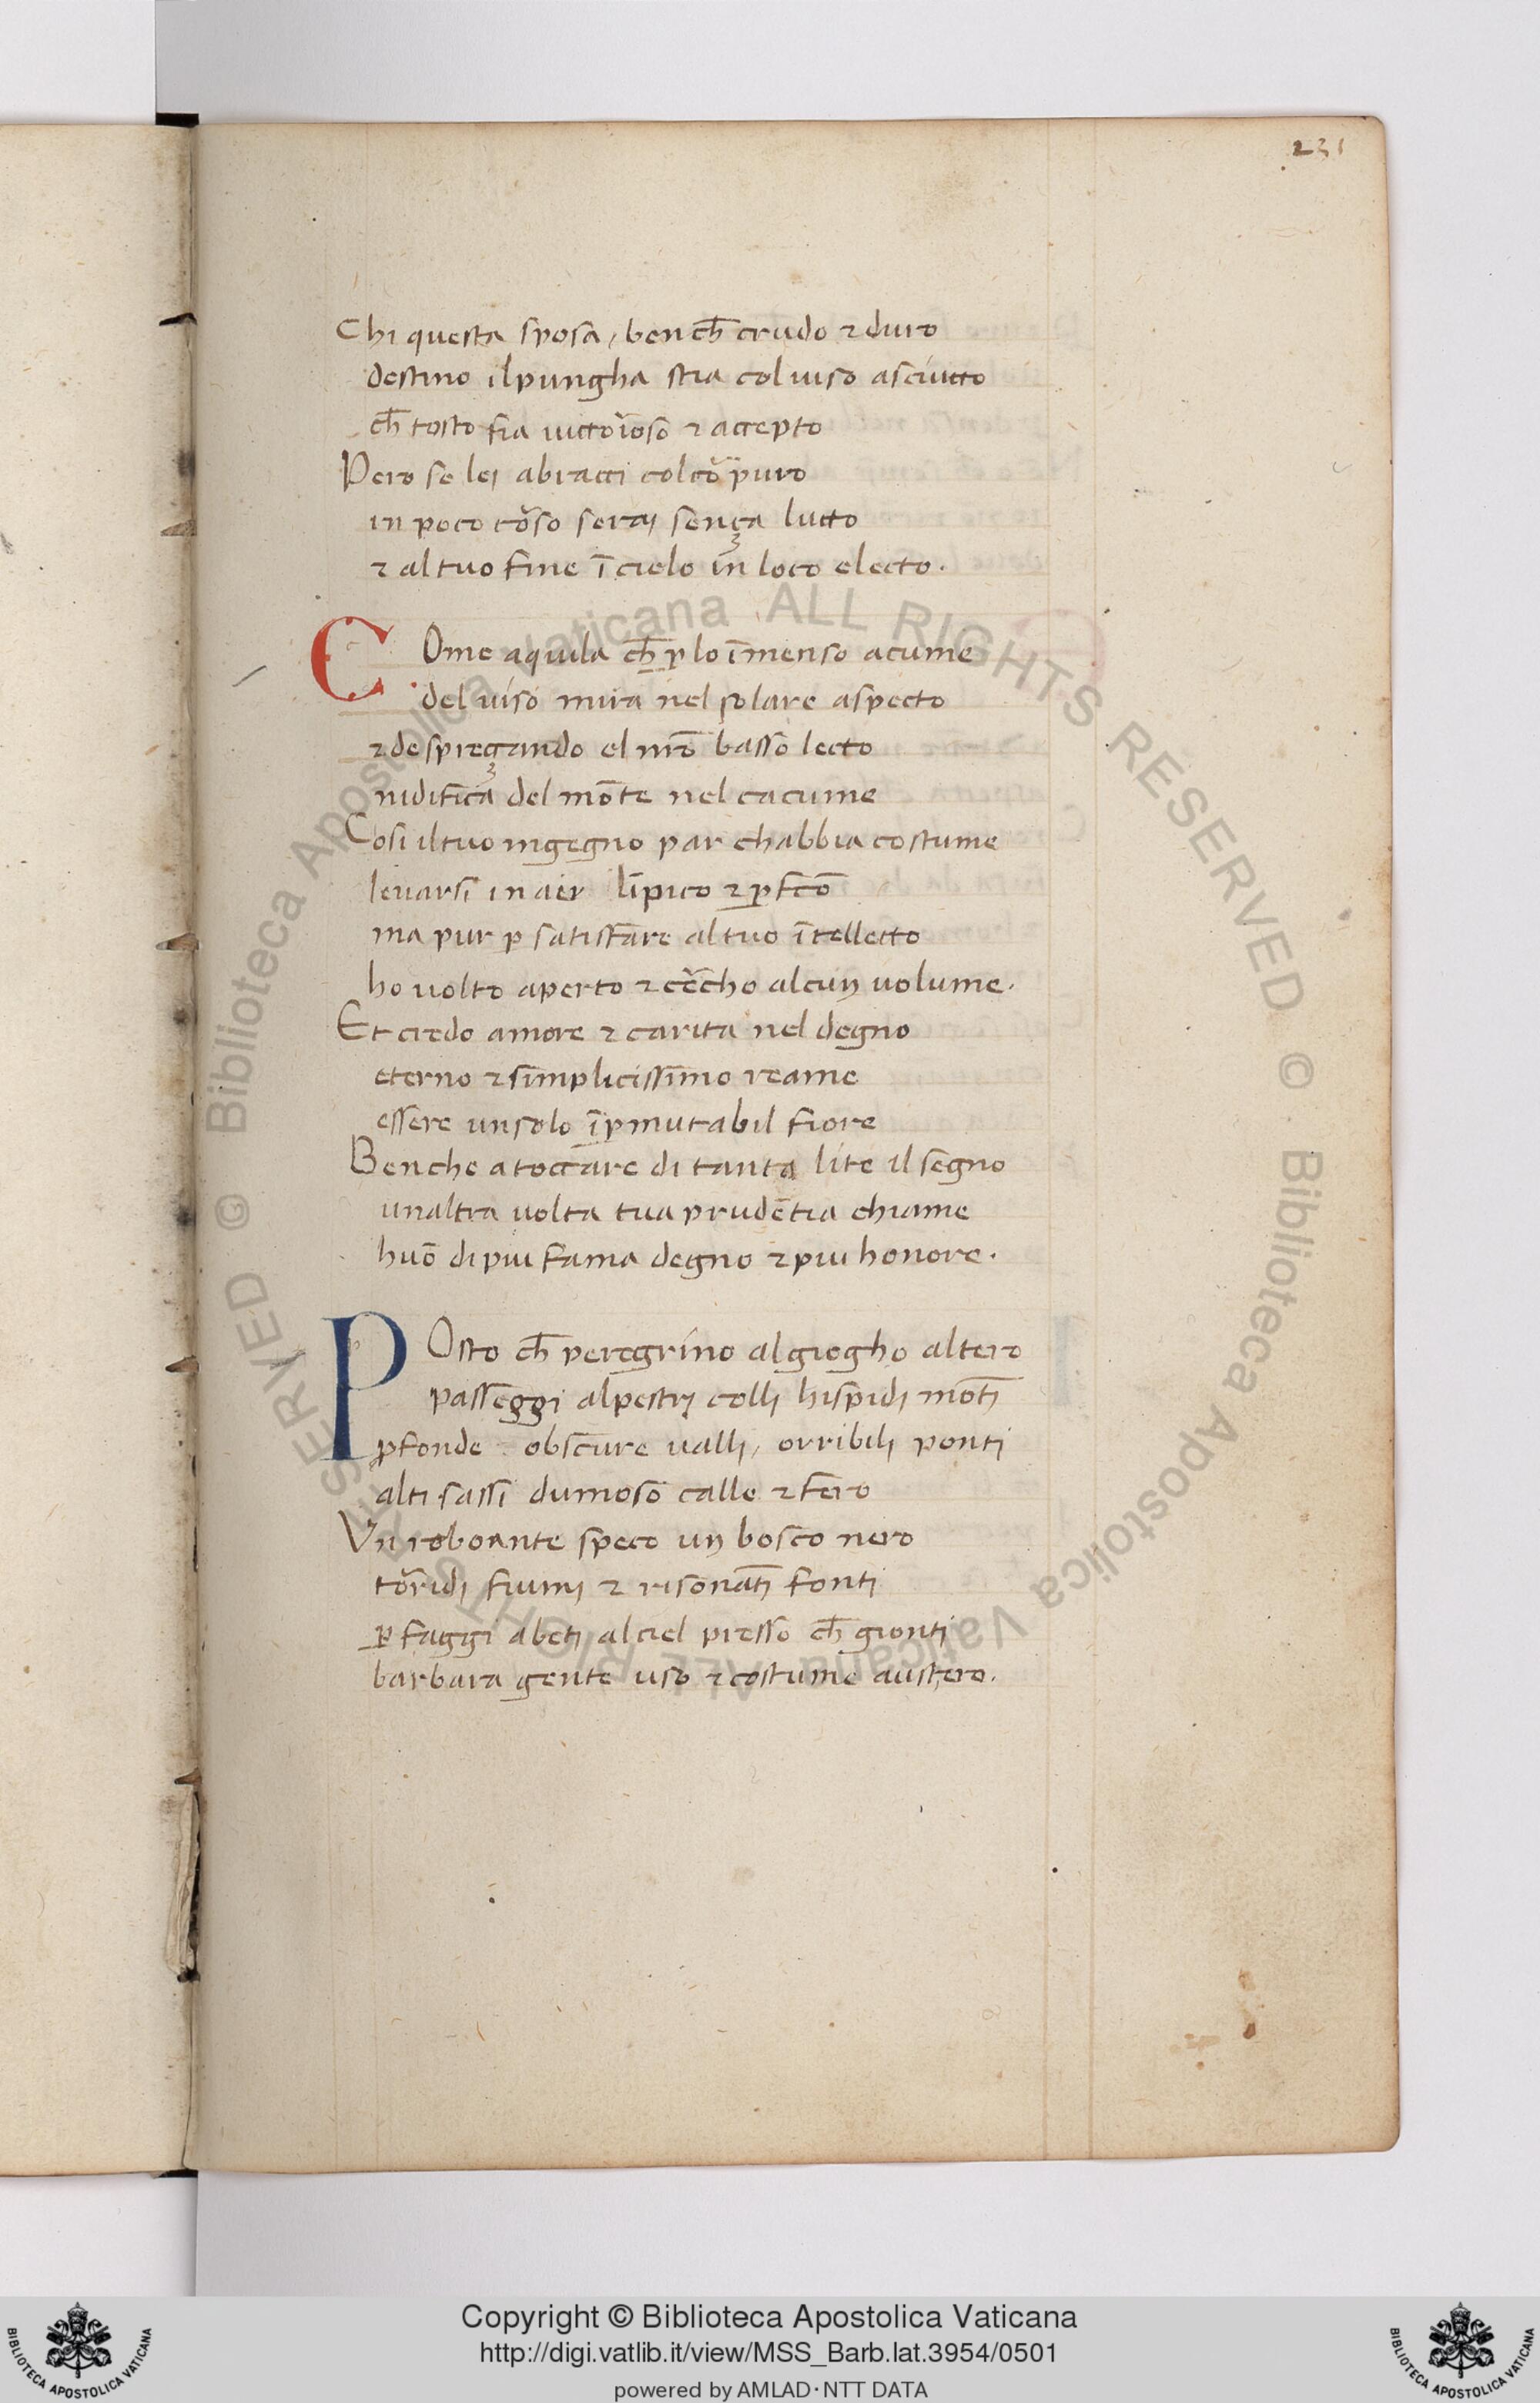 231
Chi questa sposa, benc̄h crudo ⁊ duro
destino il pungha stia col uiso asciutto
c̄h tosto fia uictorioso ⁊ accepto
Pero se lei abracci col cor puro
in poco corso serai sença lutto
⁊ al tuo fine ī cielo in loco electo.
COme aquila c̄h ꝑ lo īmenso acume
del uiso mira nel solare aspecto
⁊ despregiando el nr̄o basso lecto
nidifica del mōte nel cacume
Cosi il tuo ingegno par chabbia costume
leuarsi in aer līpido ⁊ ꝑfc̄o
ma pur ꝑ satisfare al tuo ītelletto
ho uolto aperto ⁊ cercho alcun uolume.
Et credo amore ⁊ carita nel degno
eterno ⁊ simplicissimo reame
essere un solo īꝑmutabil fiore
Benche a toccare di tanta lite il segno
unaltra uolta tua prudētia chiame
huō di piu fama degno ⁊ piu honore.
POsto c̄h peregrino al giogho altero
passeggi alpestri colli hispidi mōti
ꝓfonde obscure ualli, orribili ponti
alti sassi dumoso calle ⁊ fero
Vn roboante speco un bosco nero
torridi fiumi ⁊ risonāti fonti
ꝑ faggi abeti al ciel presso c̄h gionti
barbara gente uso ⁊ costume austero.
© Biblioteca Apostolica Vaticana ALL RIGHTS RESERVED © Biblioteca Apostolica Vaticana ALL RIGHTS RESERVED
Copyright © Biblioteca Apostolica Vaticana
http://digi.vatlib.it/view/MSS_Barb.lat.3954/0501
powered by AMLAD·NTT DATA
BIBLIOTECA APOSTOLICA VATICANA
BIBLIOTECA APOSTOLICA VATICANA